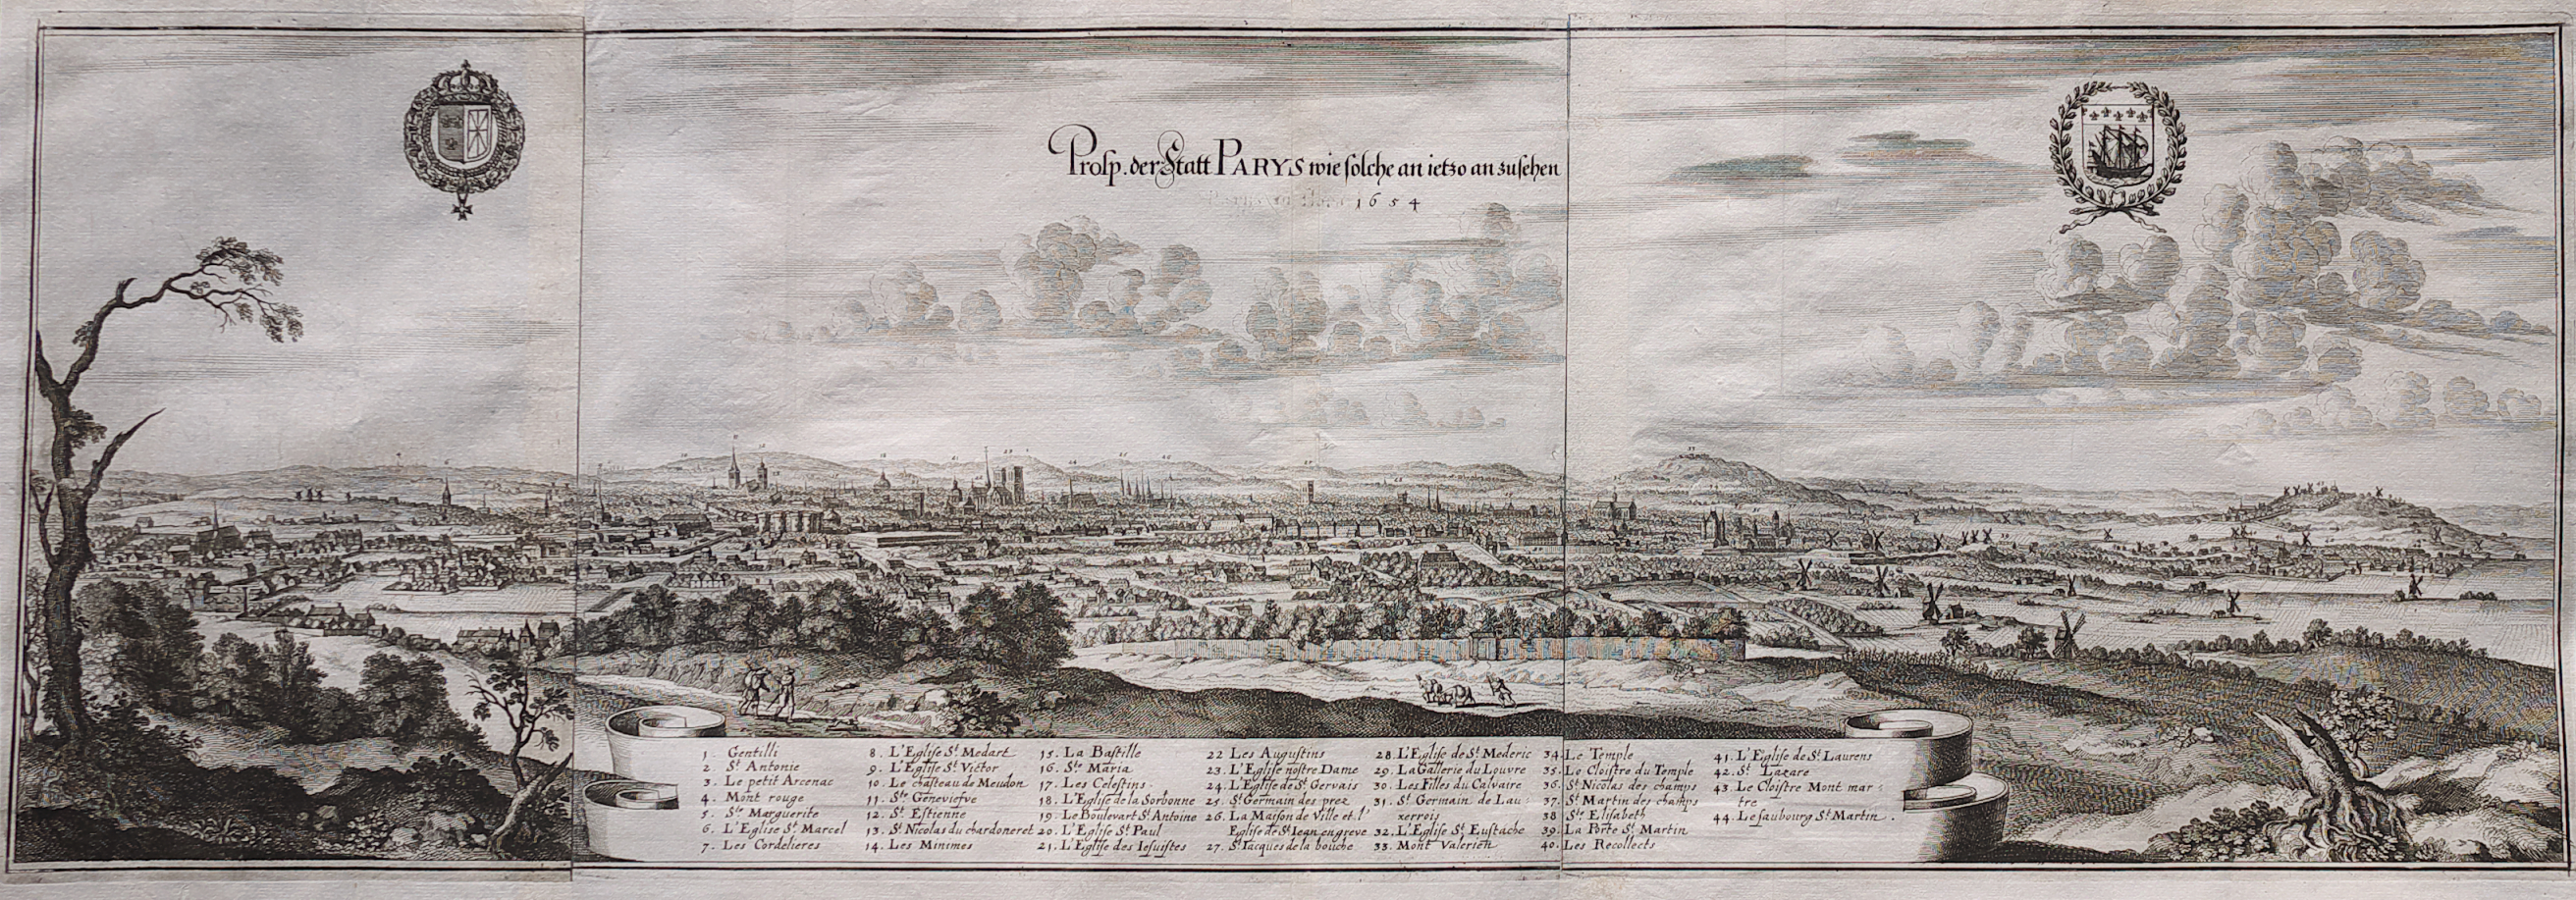 Prosp. der Statt PARYS wie solche an ietzo an zusehen
1654
1. Gentilli
2. St Antonie
3. Le petit Arcenac
4. Mont rouge
5. Ste Marguerite
6. L'Eglise St Marcel
7. Les Cordelieres
8. L'Eglise St Medart
9. L'Eglise St Victor
10. Le chasteau de Meudon
11. Ste Geneviefve
12. St Estienne
13. St Nicolas du chardoneret
14. Les Minimes
15. La Bastille
16. Ste Maria
17. Les Celestins
18. L'Eglise de la Sorbonne
19. Le Boulevart St Antoine
20. L'Eglise St Paul
21. L'Eglise des Iesuistes
22 Les Augustins
23. L'Eglise nostre Dame
24. L'Eglise de St Gervais
25. St Germain des prez
26. La Maison de Ville et l'
Eglise de St Iean en greve
27. St Iacques de la bouche
28. L'Eglise de St Mederic
29. La Gallerie du Louvre
30. Les Filles du Calvaire
31. St Germain de Lau:
xerrois
32. L'Eglise St Eustache
33. Mont Valerien
34. Le Temple
35. Le Cloistre du Temple
36. St Nicolas des champs
37. St Martin des champs
38 Ste Elisabeth
39. La Porte St Martin
40. Les Recollects
41. L'Eglise de St Laurens
42. St Lazare
43. Le Cloistre Mont mar:
tre
44. Le faubourg St Martin.